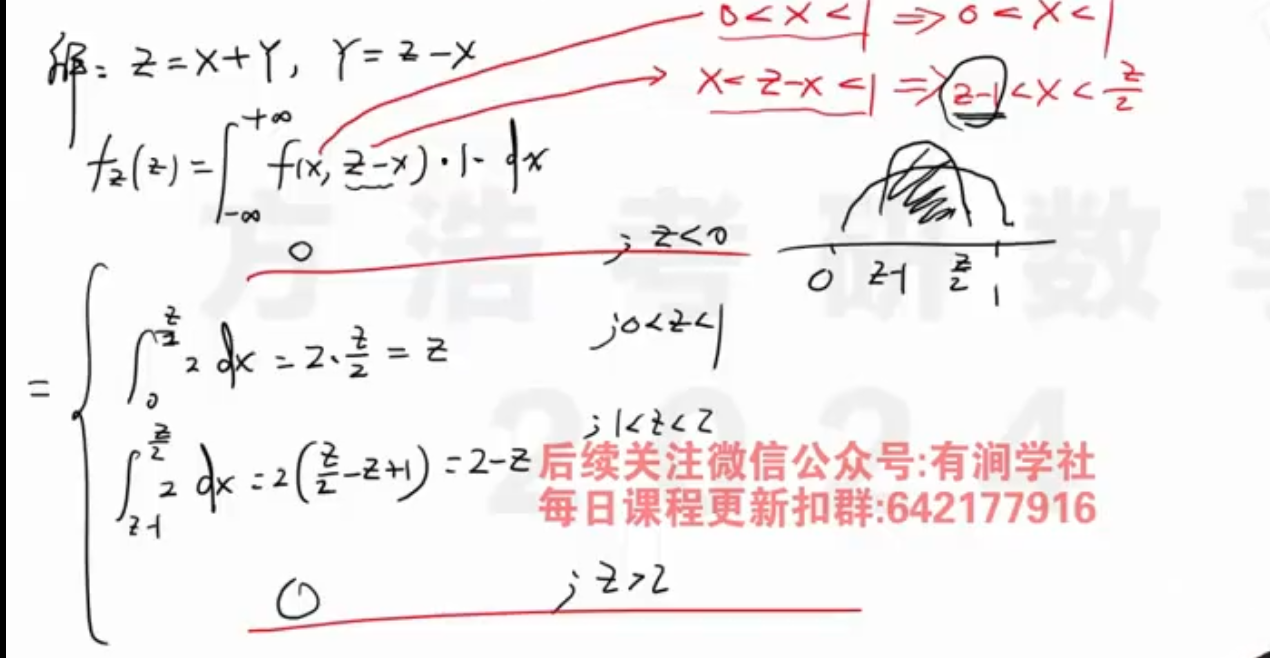 解: Z = X + Y, Y = Z - X
0 < X < 1 ⇒ 0 < X < 1
X < Z-X < 1 ⇒ Z-1 < X < Z/2
f_Z(z) = ∫_{-∞}^{+∞} f(x, z-x)·1·dx
0 Z-1 Z/2 1
= { 0 ; Z<0
∫_0^{Z/2} 2 dx = 2·Z/2 = Z ; 0<Z<1
∫_{Z-1}^{Z/2} 2 dx = 2(Z/2 - Z+1) = 2-Z ; 1<Z<2
0 ; Z>2
方浩考研数学
2024
后续关注微信公众号:有涧学社
每日课程更新扣群:642177916